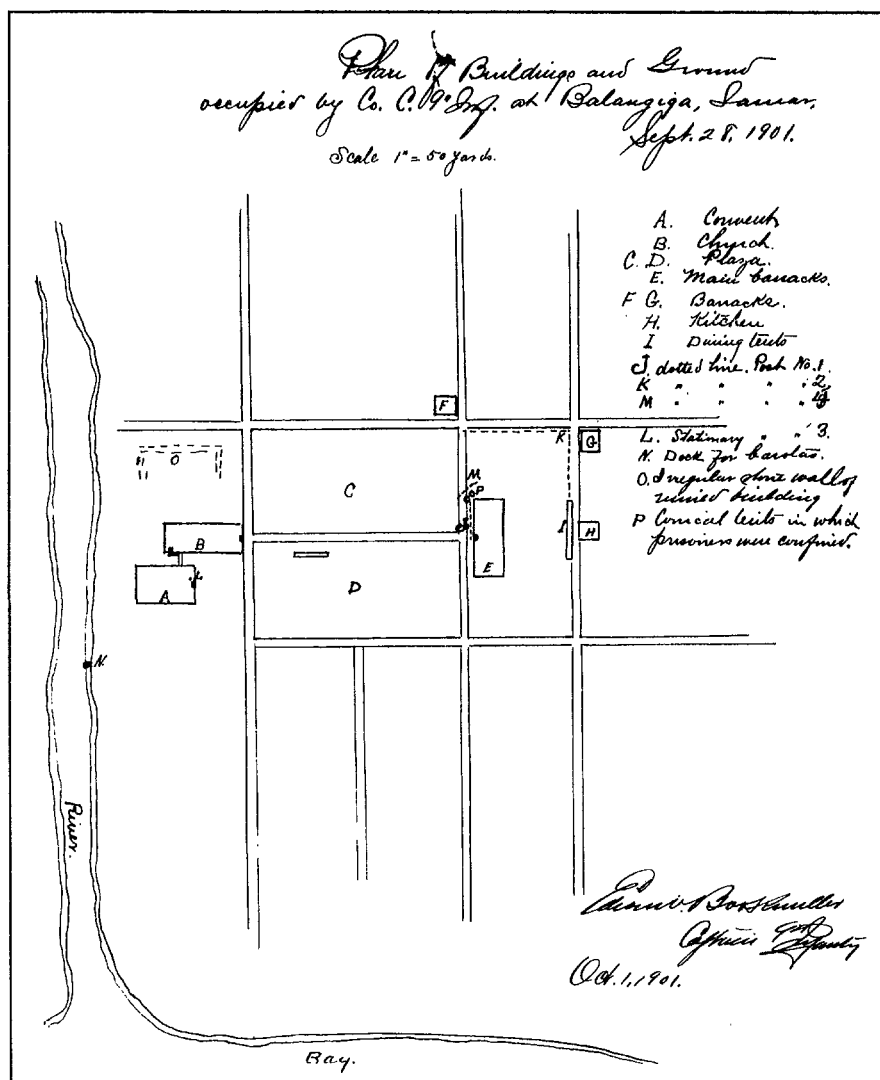 Plan of Buildings and Ground
occupied by Co. C. 9" Inf. at Balangiga, Samar.
Sept. 28, 1901.
Scale 1" = 50 yards.
A. Convent
B. Church.
C. D. Plaza.
E. Main barracks.
F G. Barracks.
H. Kitchen
I Dining tents
J. dotted line. Post No. 1.
K " " " " 2.
M " " " "
L. Stationary " " 3.
N. Dock for barotas.
O. Irregular stone wall of
ruined building
P Conical tents in which
prisoners were confined.
F
K
G
O
C
M
P
J
I
H
B
E
L
A
D
N.
River.
Bay.
Captain 9th Infantry
Oct. 1, 1901.